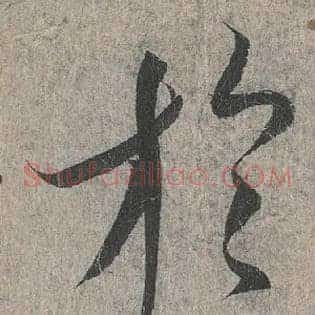 於
Shufaziliao.COM